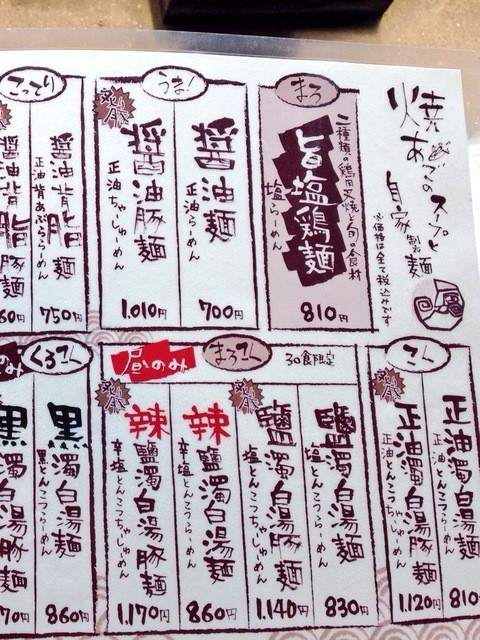 焼あごのスープと
自家製麺
※価格は全て税込みです
まろ
二種類の鶏肉炙焼と旬の食材
旨塩鶏麺
塩らーめん
810円
うま!
醤油麺
正油らーめん
700円
醤油豚麺
正油ちゃーしゅーめん
1,010円
こってり
醤油背脂麺
正油背あぶららーめん
750円
醤油背脂豚麺
60円
こく
正油濁白湯麺
正油とんこつらーめん
810
正油濁白湯豚麺
正油とんこつちゃーしゅーめん
1,120円
昼のみ
まろこく
30食限定
鹽濁白湯麺
塩とんこつらーめん
830円
鹽濁白湯豚麺
塩とんこつちゃーしゅーめん
1,140円
辣鹽濁白湯麺
辛塩とんこつらーめん
860円
辣鹽濁白湯豚麺
辛塩とんこつちゃーしゅーめん
1,170円
のみ
くろこく
黒濁白湯麺
黒とんこつらーめん
860円
黒濁白湯豚麺
70円